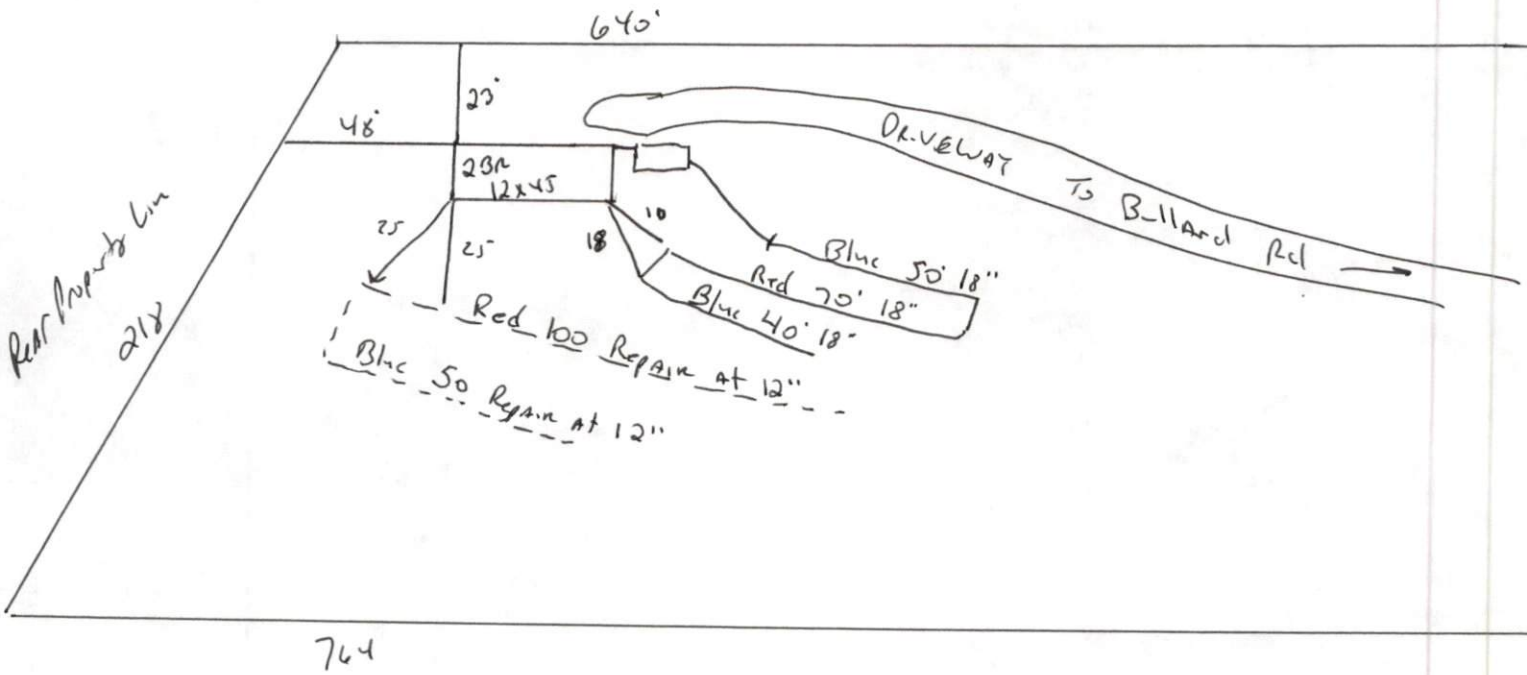 640'
23'
48'
2BR
12x45
DRIVEWAY To Bullard Rd
Rear Property Line
218
25
25
18
10
Blue 50' 18"
Red 70' 18"
Blue 40' 18"
Red 100 Repair At 12"
Blue 50 Repair At 12"
764